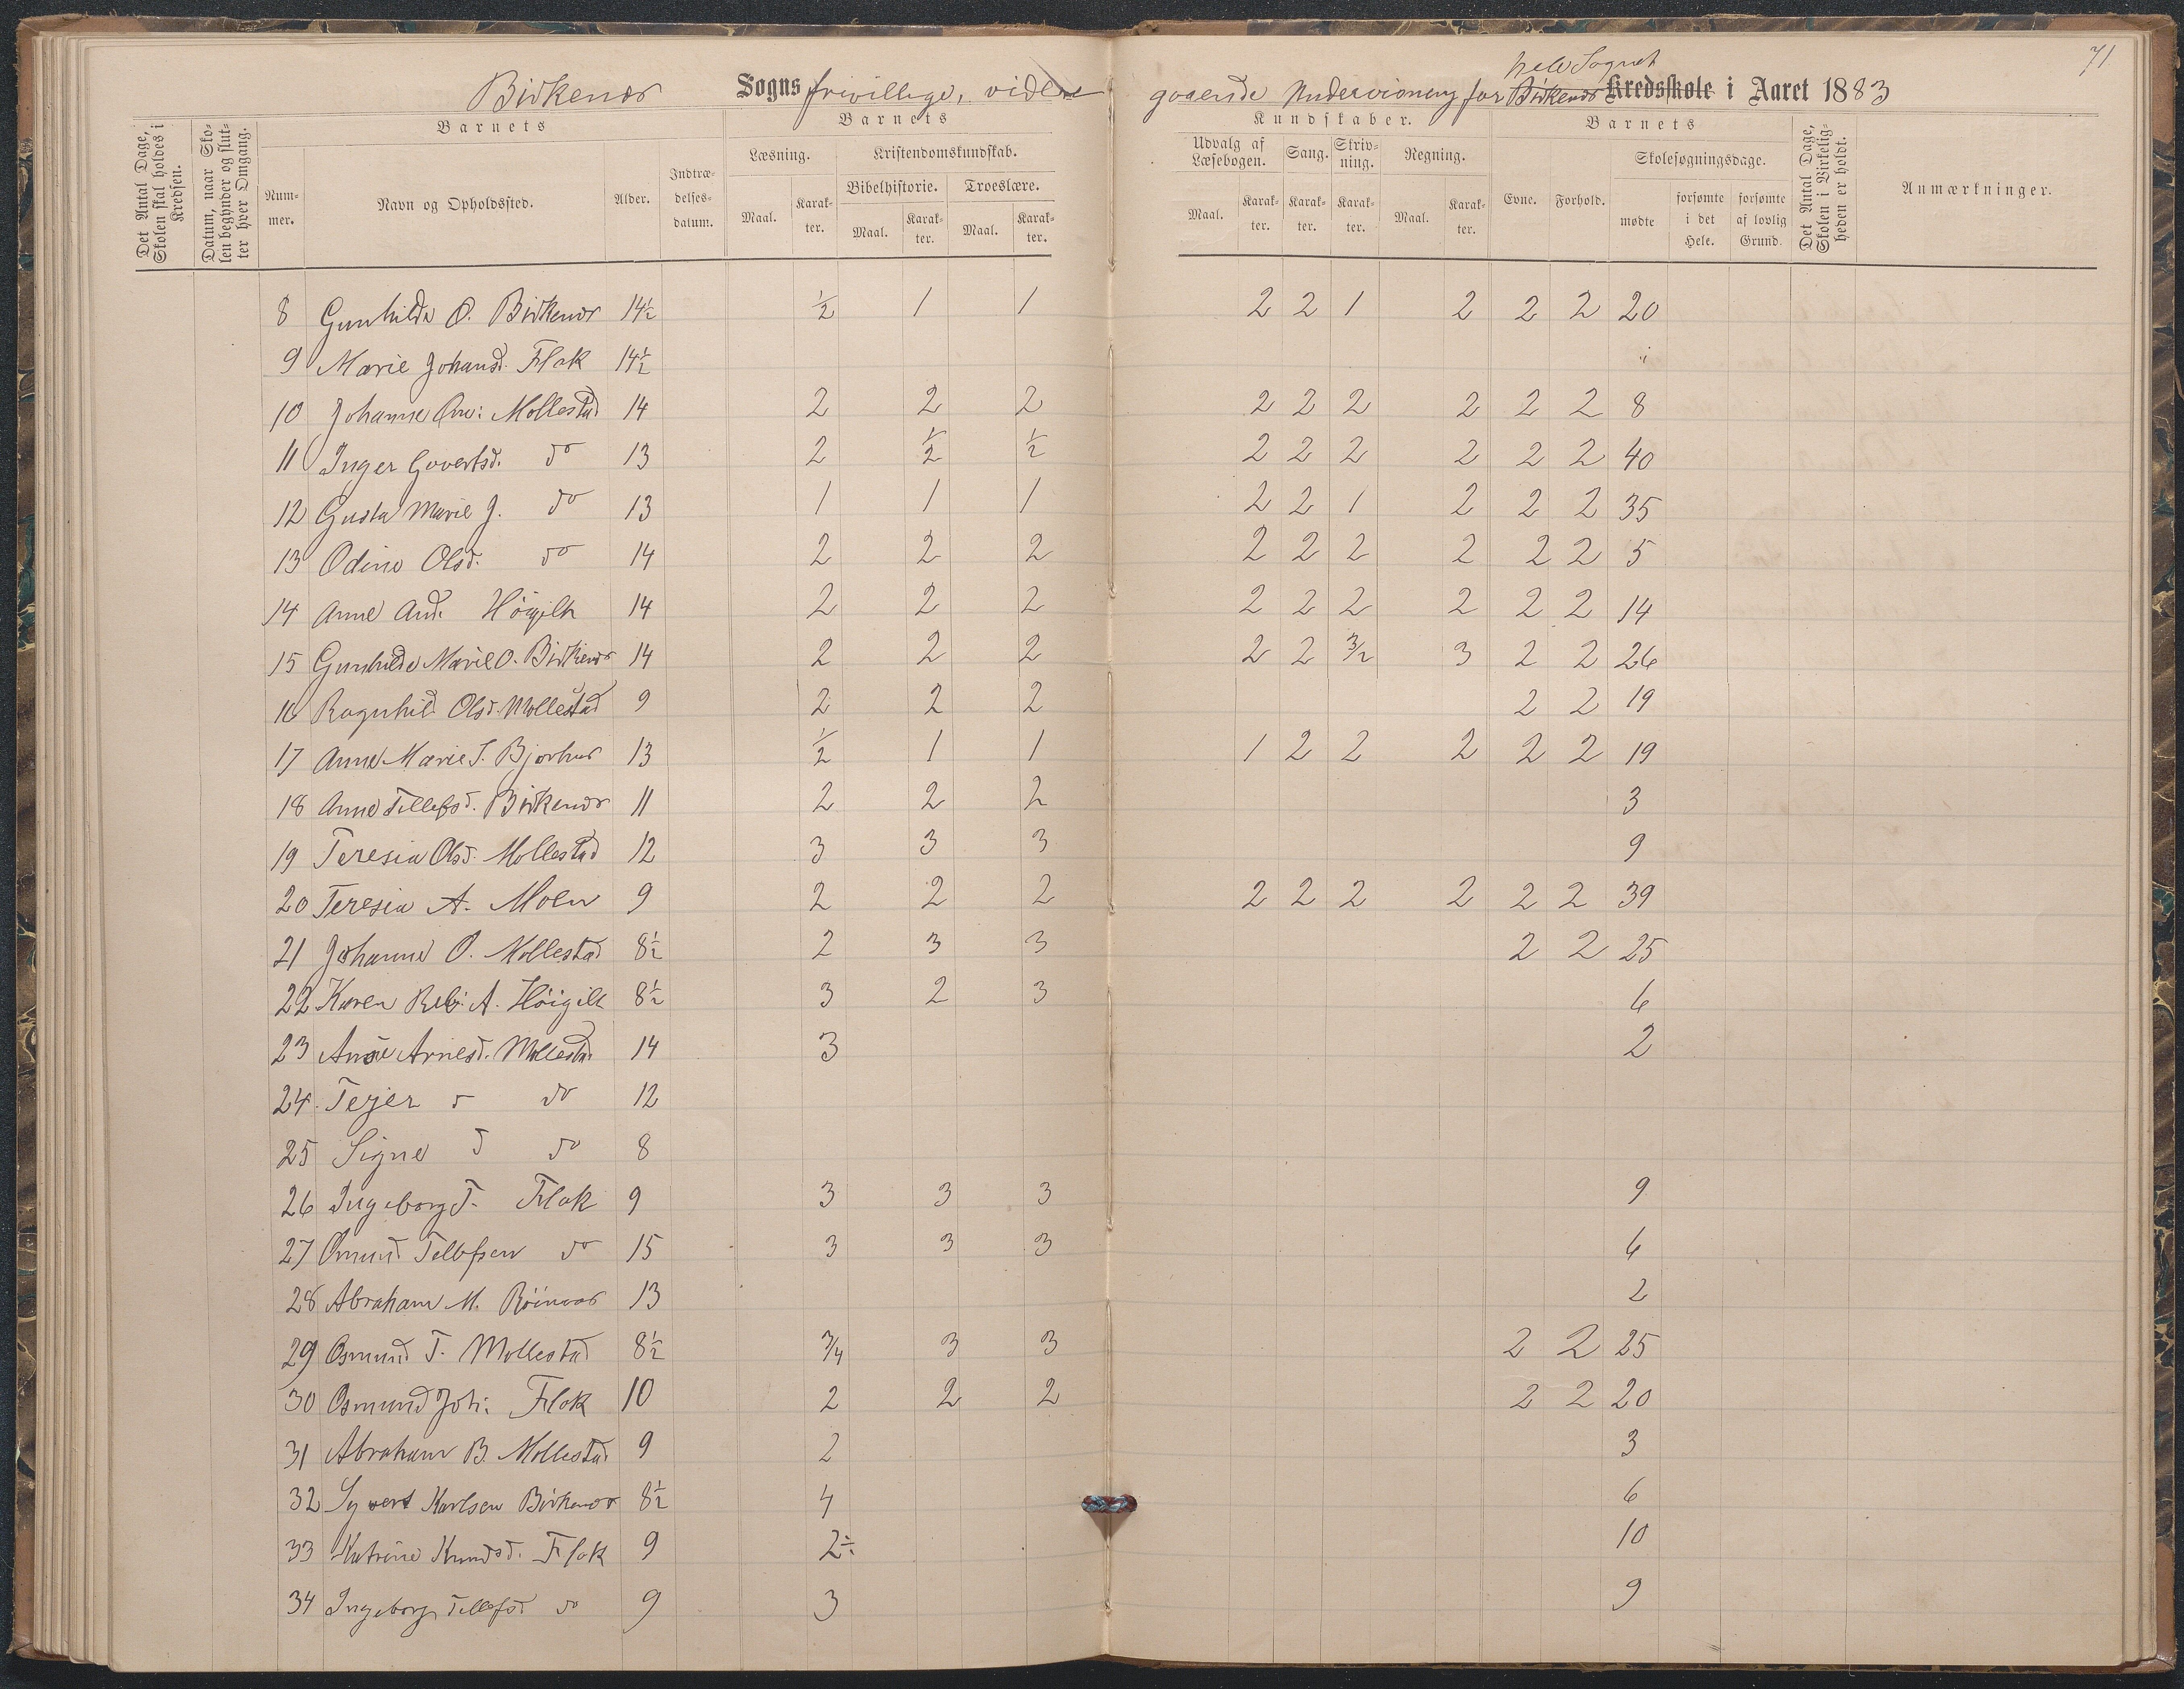 71
hele Sognet
Birkenes Sogns frivillige, videre gaaende Undervisning for Birkenes Kredsskole i Aaret 1883
Det Antal Dage, Skolen skal holdes i Kredsen.
Datum, naar Skolen begynder og slutter hver Omgang.
Barnets
Barnets
Kundskaber.
Barnets
Det Antal Dage, Skolen i Virkeligheden er holdt.
Anmærkninger.
Nummer.
Navn og Opholdssted.
Alder.
Indtrædelsesdatum.
Læsning.
Kristendomskundskab.
Udvalg af Læsebogen.
Sang.
Skrivning.
Regning.
Evne.
Forhold.
Skolesøgningsdage.
Bibelhistorie.
Troeslære.
Maal. Karakter. Maal. Karakter. Maal. Karakter.
Maal. Karakter. Karakter. Karakter. Maal. Karakter.
mødte forsømte i det Hele. forsømte af lovlig Grund.
8 Gunhilde O. Birkenes 14½ ½ 1 1 2 2 1 2 2 2 20
9 Marie Johansd. Flak 14½
10 Johanne Mollestad 14 2 2 2 2 2 2 2 2 2 8
11 Inger Govertsd. do 13 2 ½ ½ 2 2 2 2 2 2 40
12 Gusta Marie J. do 13 1 1 1 2 2 1 2 2 2 35
13 Odine Olsd. do 14 2 2 2 2 2 2 2 2 2 5
14 Anne And. Höigilt 14 2 2 2 2 2 2 2 2 2 14
15 Gunhilde Marie O. Birkenes 14 2 2 2 2 2 3/2 3 2 2 26
16 Ragnhild Olsd. Mollestad 9 2 2 2 2 2 19
17 Anne Marie S. Bjorhus 13 ½ 1 1 1 2 2 2 2 2 19
18 Anne Tellefsd. Birkenes 11 2 2 2 3
19 Teresia Olsd. Mollestad 12 3 3 3 9
20 Teresia A. Moen 9 2 2 2 2 2 2 2 2 2 39
21 Johanne O. Mollestad 8½ 2 3 3 2 2 25
22 Karen Reb. A. Höigilt 8½ 3 2 3 6
23 Arnesd. Mollestad 14 3 2
24 Tejer d do 12
25 Signe d do 8
26 Ingeborg T. Flak 9 3 3 3 9
27 Omund Tellefsen do 15 3 3 3 6
28 Abraham M. 13 2
29 Osmund T. Mollestad 8½ 3/4 3 3 2 2 25
30 Osmund Joh. Flak 10 2 2 2 2 2 20
31 Abraham B. Mollestad 9 2 3
32 Syvert Karlsen Birkenes 8½ 4 6
33 Katrine Knudsd. Flak 9 2÷ 10
34 Ingeborg Tellefsd. do 9 3 9